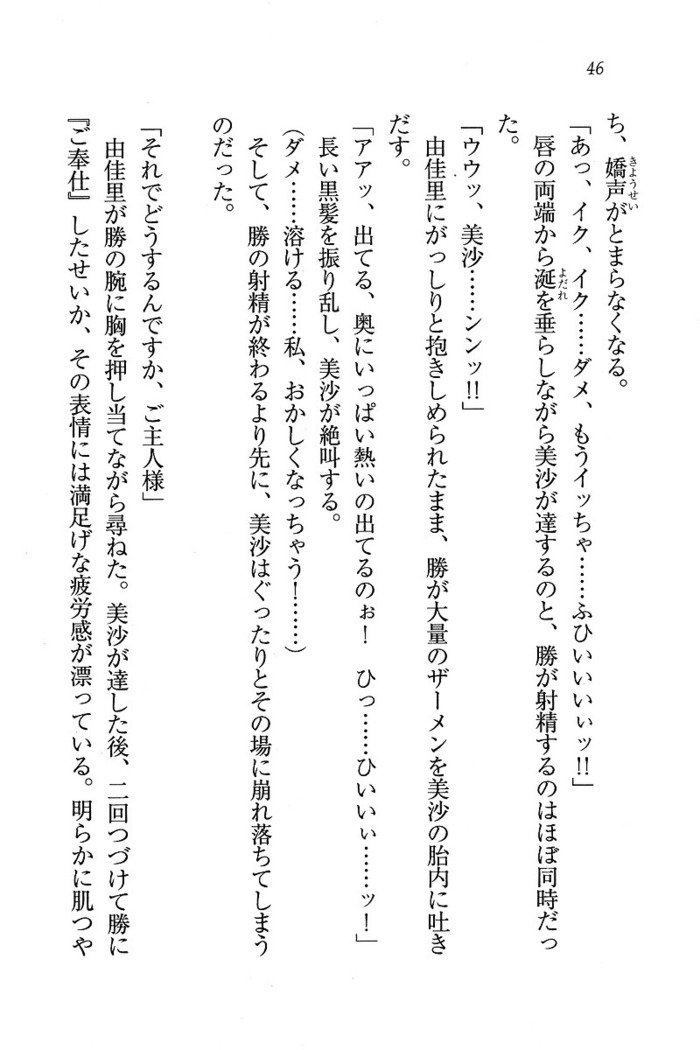 46
ち、嬌声がとまらなくなる。
「あっ、イク、イク……ダメ、もうイッちゃ……ふひいいいぃッ!!」
唇の両端から涎を垂らしながら美沙が達するのと、勝が射精するのはほぼ同時だっ
た。
「ウウッ、美沙……ンンッ!!」
由佳里にがっしりと抱きしめられたまま、勝が大量のザーメンを美沙の胎内に吐き
だす。
「アアッ、出てる、奥にいっぱい熱いの出てるのぉ！　ひっ……ひいいぃ……ッ！」
長い黒髪を振り乱し、美沙が絶叫する。
（ダメ……溶ける……私、おかしくなっちゃう！……）
そして、勝の射精が終わるより先に、美沙はぐったりとその場に崩れ落ちてしまう
のだった。
「それでどうするんですか、ご主人様」
由佳里が勝の腕に胸を押し当てながら尋ねた。美沙が達した後、二回つづけて勝に
『ご奉仕』したせいか、その表情には満足げな疲労感が漂っている。明らかに肌つや